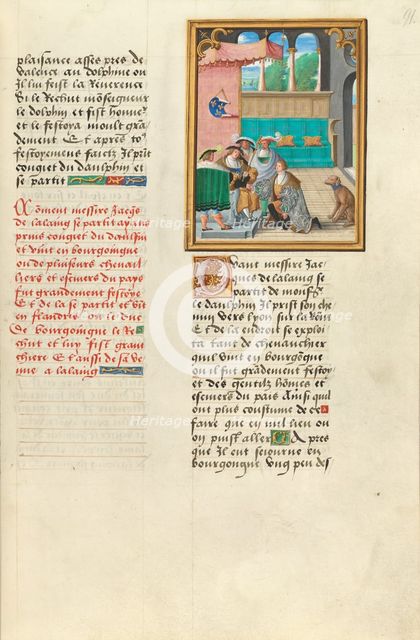 plaisance asses pres de
valence au dolphine ou
Il luy feist la Reverence
Et le Rechut monseigneur
le dolphin et fist honneur
et le festoya moult gra
dement Et apres
festoyemens faictz Il prit
conget du daulphin et
se partit
Coment messire Jacqs
de lalaing se partit ayans
prins conget du daulfin
et vint en bourgongne
ou de plusieurs cheval
liers et escuiers du pays
fut grandement festoye
Et de la se partit et vit
en flandres ou le duc
de bourgoingne le Re
chut et luy fist gran
chiere Et aussi de sa ve
nue a lalaing
91
Quant messire Jac
ques de lalaing se
partit de monsr
le daulphin Il prist son che
min vers lyon sur la
Et de la endroit se exploi
ta tant de chevauchier
quil vint en bourgogne
ou il fut grandement festoy
et des gentilz homes et
escuiers du pais Ainsi quil
ont plus coustume de ce
faire que en nul lieu ou
on puist aller Apres
que Il eut seiourne en
bourgongne ung peu de
Heritage
Heritage
Heritage
Heritage